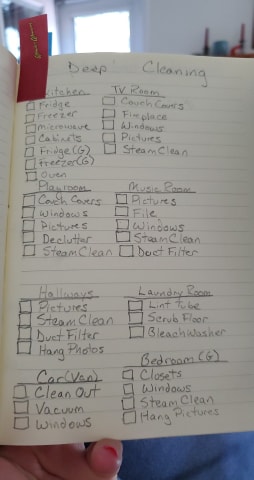 Deep Cleaning
Kitchen
Fridge
Freezer
Microwave
Cabinets
Fridge (G)
Freezer (G)
Oven
TV Room
Couch Covers
Fireplace
Windows
Pictures
Steam Clean
Playroom
Couch Covers
Windows
Pictures
Declutter
Steam Clean
Music Room
Pictures
File
Windows
Steam Clean
Dust Filter
Hallways
Pictures
Steam Clean
Duct Filter
Hang Photos
Laundry Room
Lint Tube
Scrub Floor
Bleach Washer
Car (Van)
Clean Out
Vacuum
Windows
Bedroom (G)
Closets
Windows
Steam Clean
Hang Pictures